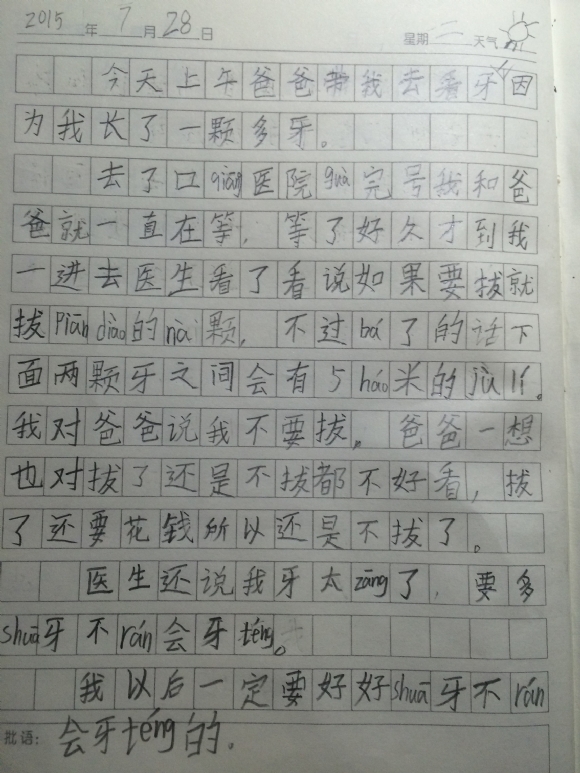 2015年7月28日 星期二 天气
今天上午爸爸带我去看牙因
为我长了一颗多牙。
去了口qiāng医院guà完号我和爸
爸就一直在等，等了好久才到我
一进去医生看了看说如果要拔就
拔Piān diào的nà颗，不过bá了的话下
面两颗牙之间会有5háo米的jù lí。
我对爸爸说我不要拔。爸爸一想
也对拔了还是不拔都不好看，拔
了还要花钱所以还是不拔了。
医生还说我牙太zāng了，要多
shuā牙不rán会牙téng。
我以后一定要好好shuā牙不rán
批语：会牙téng的。